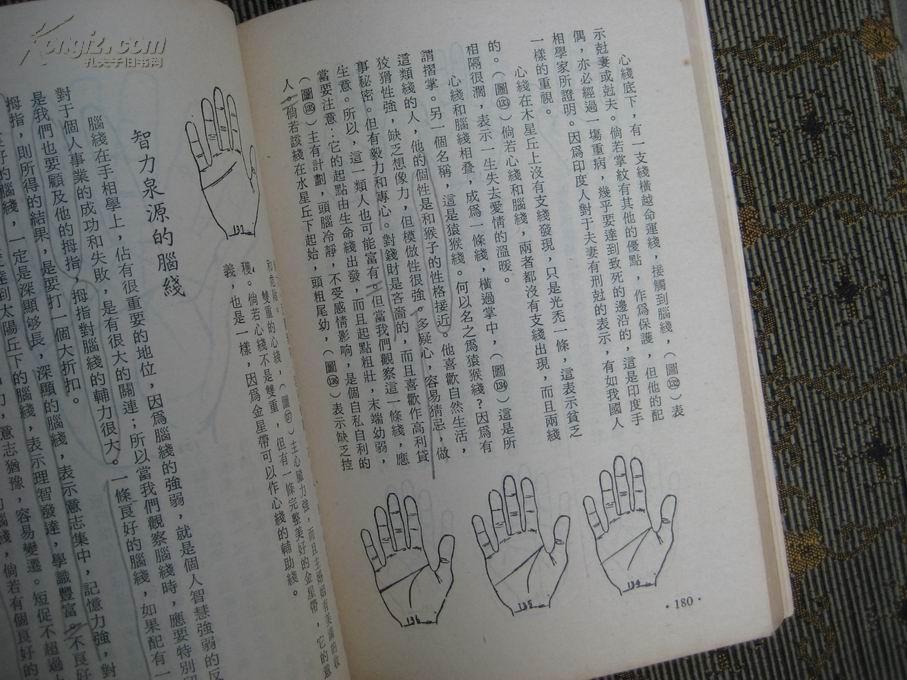 心綫底下，有一支綫橫越命運綫，接觸到腦綫，（圖132）表
示尅妻或尅夫。倘若掌紋有其他的優點，作爲保護，但他的配
偶，亦必經過一塲重病，幾乎要達到致死的邊沿的，這是印度手
相學家所證明。因爲印度人對于夫妻有刑尅的表示，有如我國人
一樣的重視。
心綫在木星丘上沒有支綫發現，只是光禿一條，這表示貧乏
的。（圖133）倘若心綫和腦綫，兩者都沒有支綫出現，而且兩綫
相隔很濶，表示一生失去愛情的溫暖。
心綫和腦綫相叠，成爲一條綫，橫過掌中，（圖134）這是所
謂摺掌。另一個名稱，這是猿猴綫。何以名之爲猿猴綫？因爲有
這類綫的人，他的個性是和猴子的性格接近。他喜歡自然生活，
狡猾性強，缺乏想像力，但模倣性很強。多疑心，容易猜忌，做
事秘密。但有毅力和專心。對錢財是吝嗇的，而且喜歡作高利貸
生意。所以，這一類人也可能富有。但當我們觀察這一條綫，應
當要注意：它的起點由生命綫出發，而且起點粗壯，末端幼弱，
（圖135）主有計劃，頭腦冷靜，不受感情影响，是個自私自利的
人。倘若該綫在水星丘下起始，頭粗尾幼，（圖136）表示缺乏控
134
135
136
·180·
雙重的心綫，
穫。倘若心綫不是雙重，但有一條完整美好的金星帶，它的意
義，也是一樣，因爲金星帶可以作心綫的輔助綫。
智力泉源的腦綫
腦綫在手相學上，佔有很重要的地位，因爲腦綫的強弱，就是個人智慧強弱的反
對于個人事業的成功和失敗，是有很大的關連；所以當我們觀察腦綫時，應要特別
是我們也要顧及他的拇指，拇指對腦綫的輔力很大。一條良好的腦綫，如果配有一
拇指，則所得的結果，是要打一個大折扣。
一定是深顯够長，深顯的腦綫，表示意志集中，記憶力強，對
太陽丘下的腦綫，表示理智發達，學識豐富。不良好
意志猶豫，容易變遷。短促不超過
倘若有個良好的
Kongfz.com
孔夫子旧书网